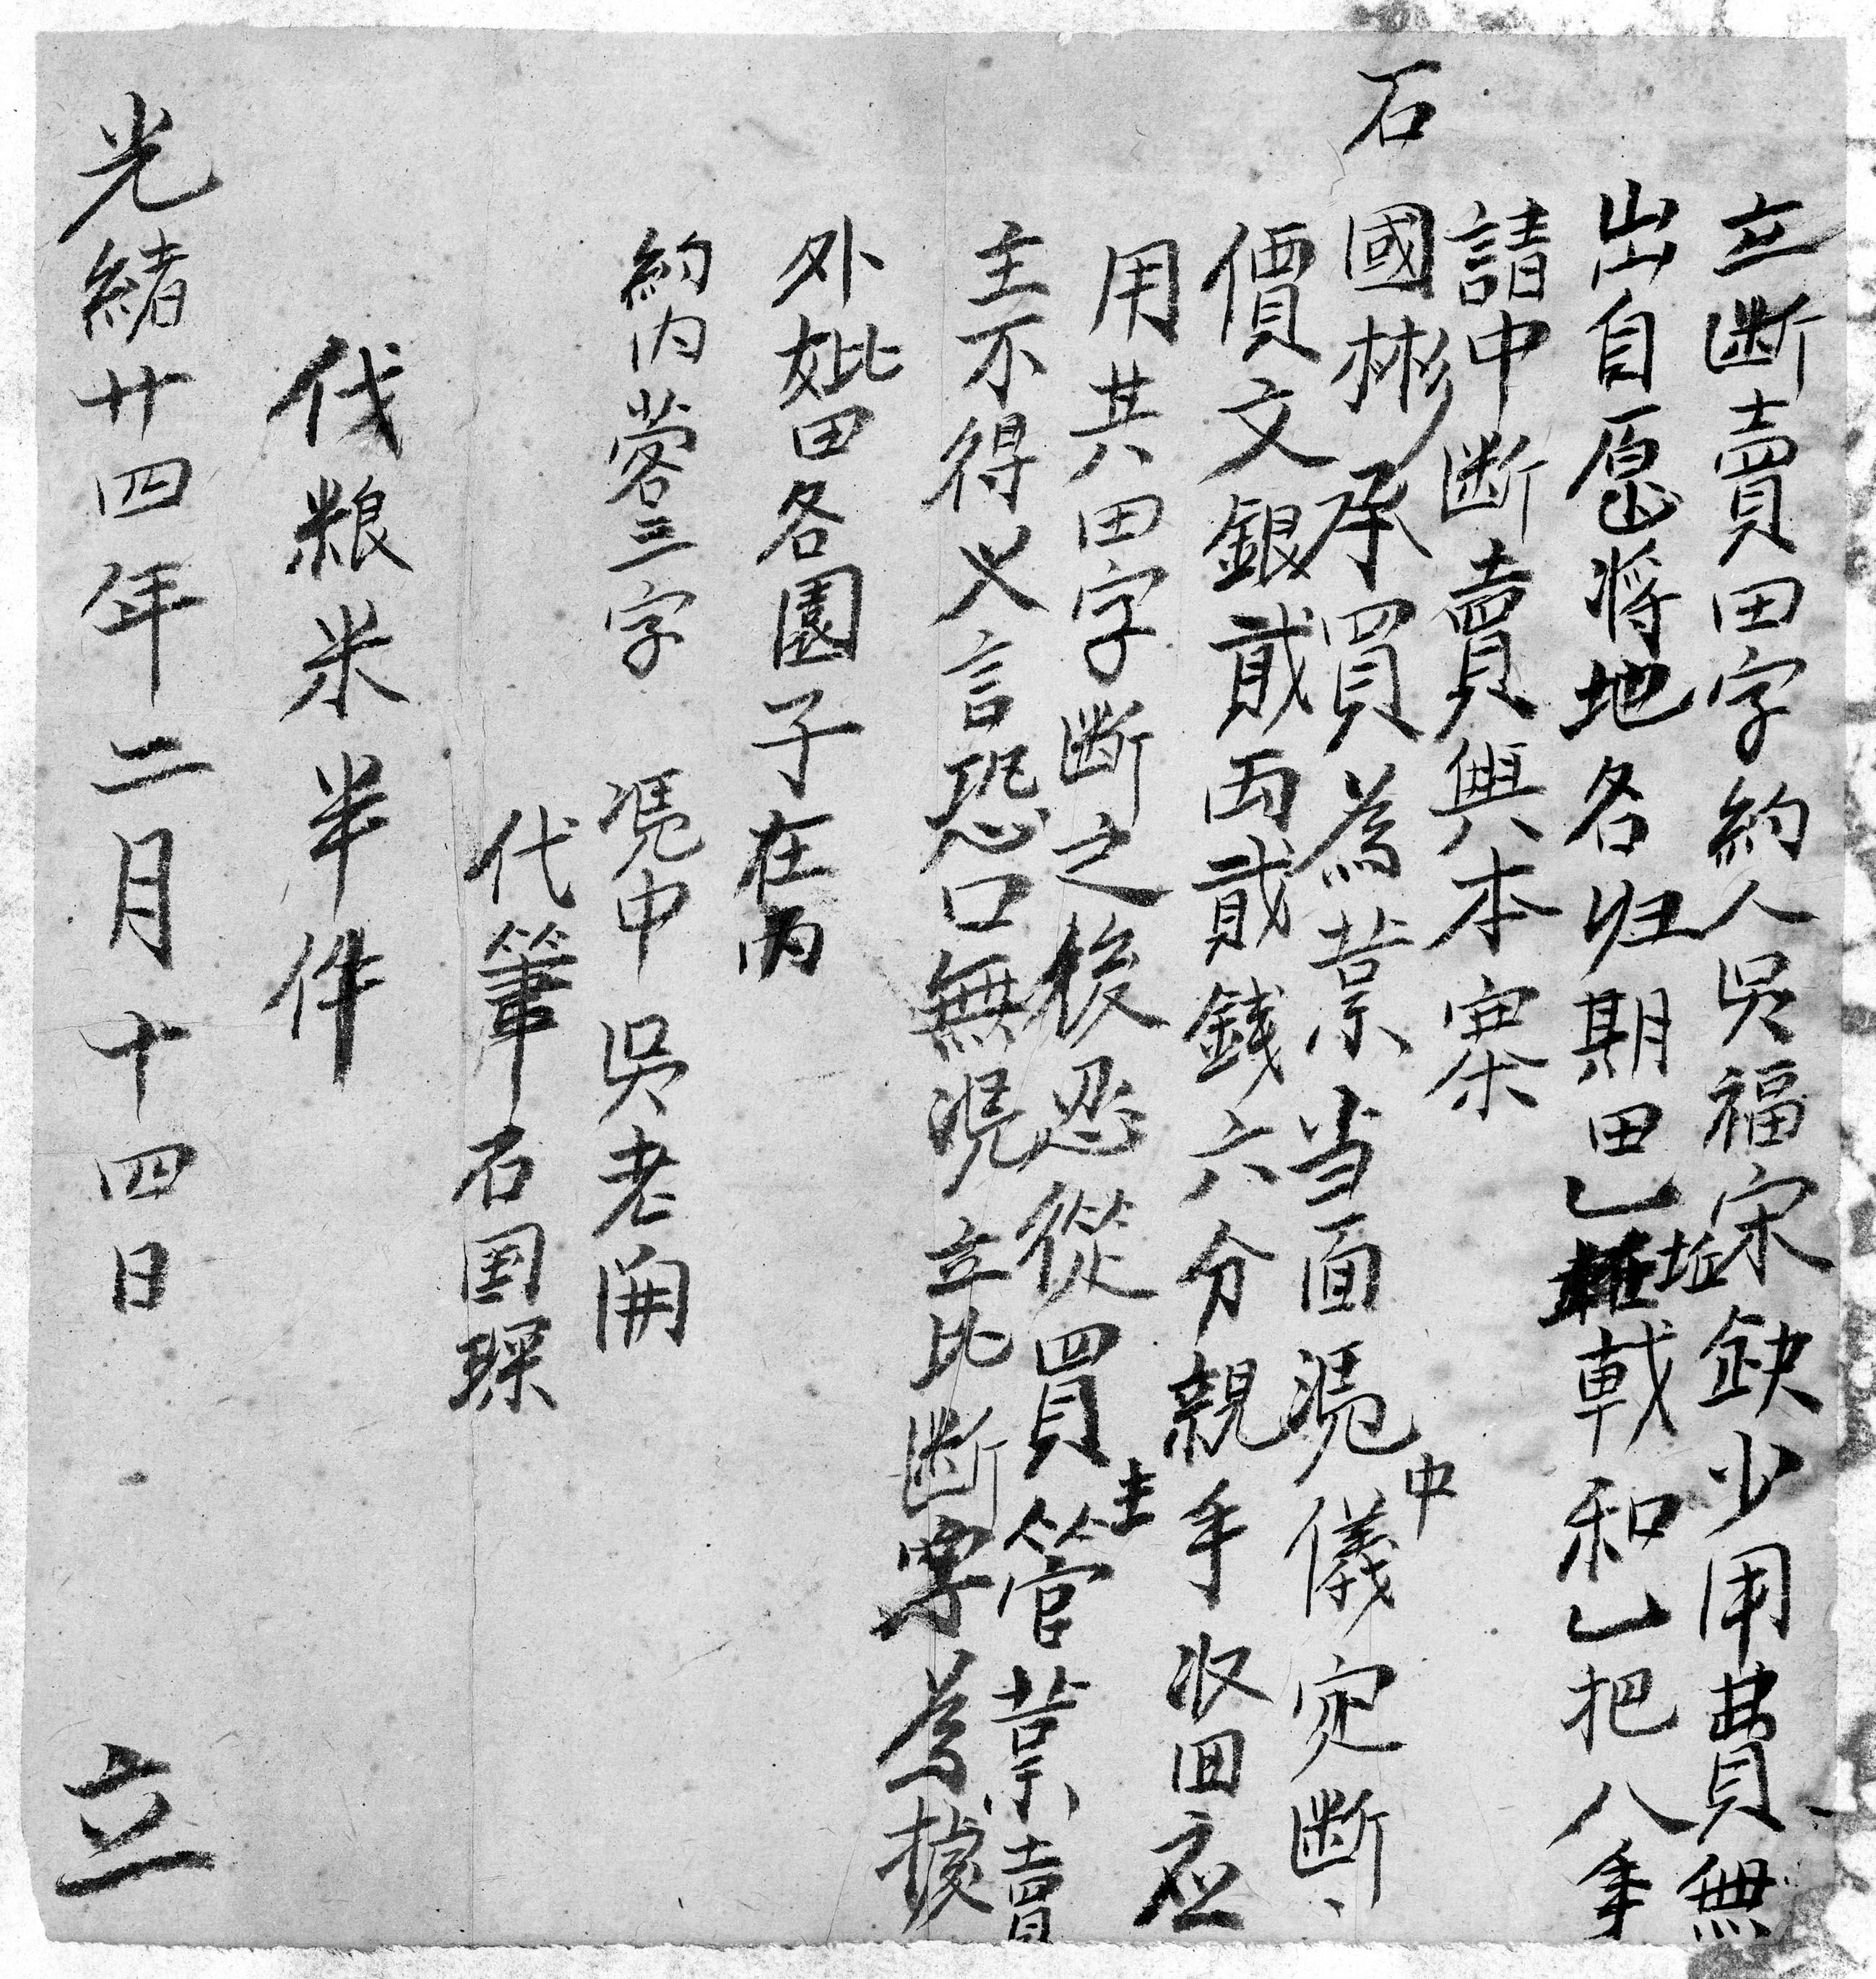 立断賣田字約人吳福宋缺少用費無
出自愿將地名归期田乚坵載禾乚把八手
請中断賣與本寨
石國彬承買為業当面凴中儀定断
價文銀貳両貳錢六分親手収回应
用其田字断之後忍從買主管業賣
主不得义言恐口無凴立比断字為據
外毑田各園子在內
約内落三字 凴中 吳老開
代筆石国琛
伐粮米半件
光緒廿四年二月十四日 立